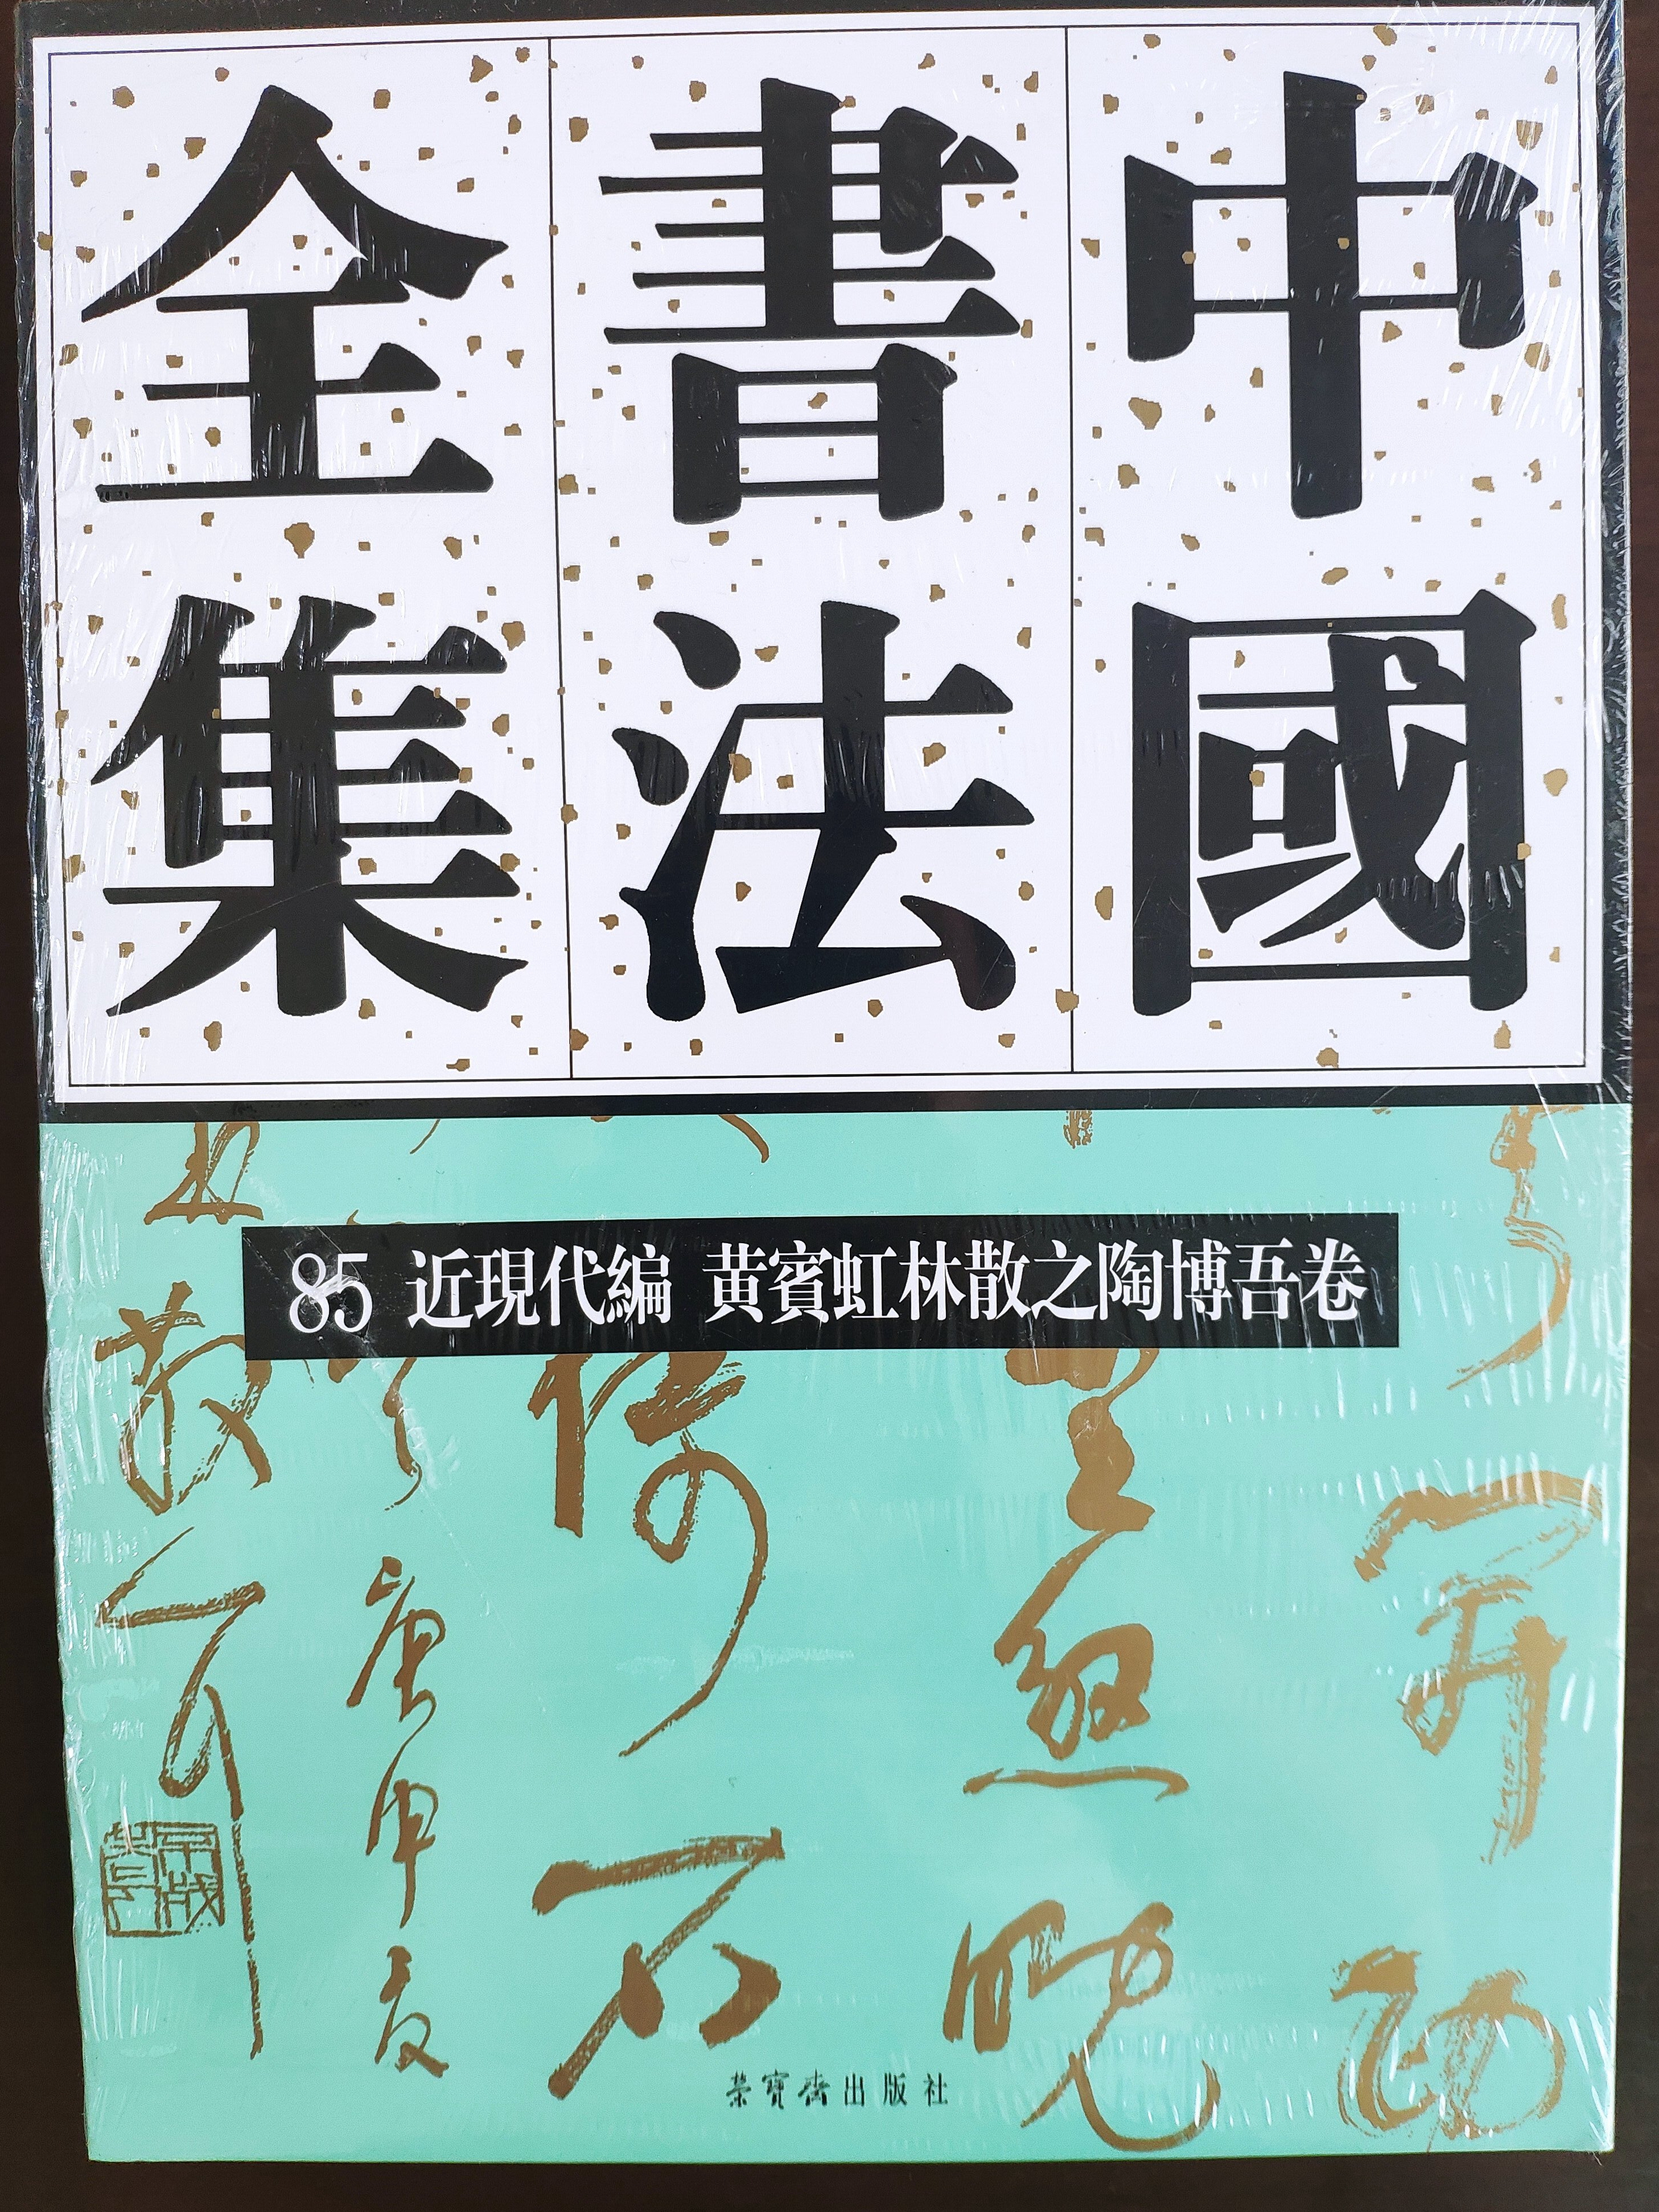 中國
書法
全集
85 近現代編 黄賓虹林散之陶博吾卷
庚申夏
散之
榮寶齋出版社